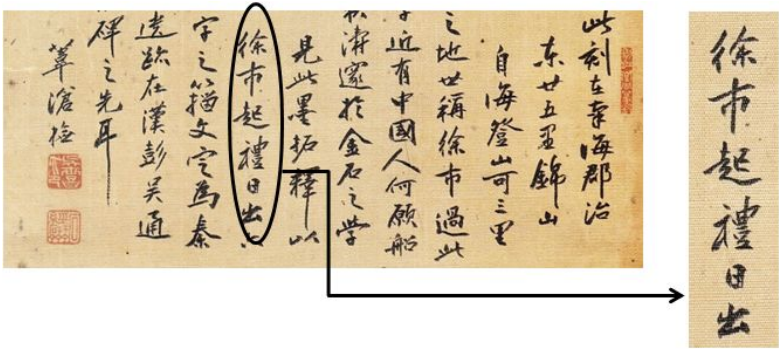 此刻在南海郡治
东廿五里錦山
自海登山可三里
之地世稱徐市過此
近有中國人何願船
秋濤邃於金石之學
見此墨拓釋以
徐市起禮日出
字之籀文定為秦
遠跡在漢彭吳通
碑之先耳
葦滄檢
徐市起禮日出